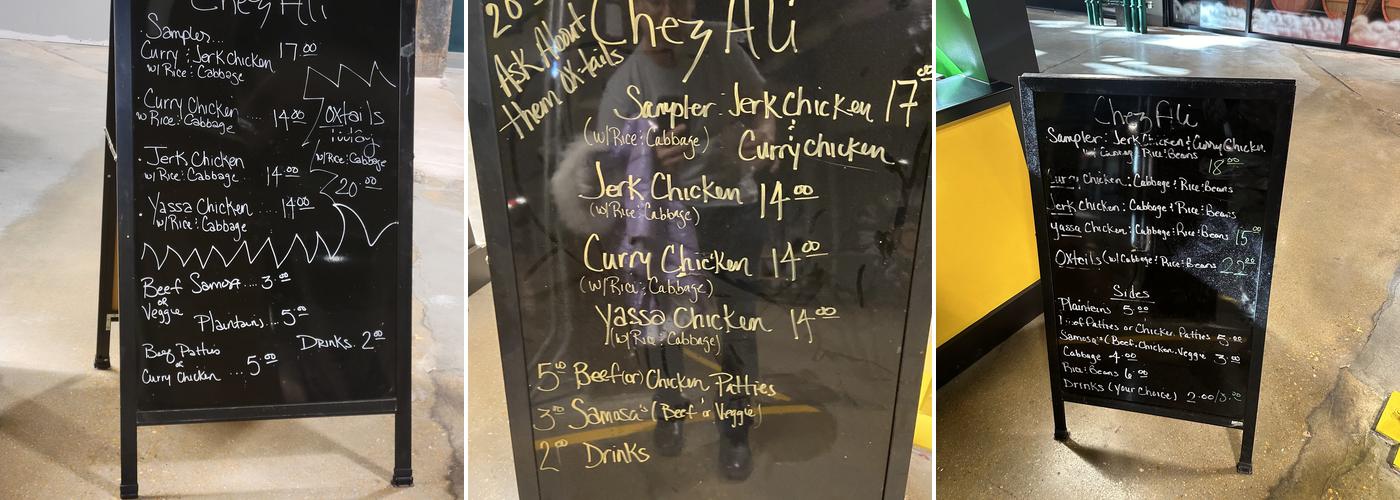 Chez Ali
Samples...
Curry & Jerk Chicken 17.00
w/ Rice & Cabbage
Curry Chicken ... 14.00
w/ Rice & Cabbage
Jerk Chicken
w/ Rice & Cabbage 14.00
Yassa Chicken ... 14.00
w/ Rice & Cabbage
Oxtails
w/ Rice & Cabbage
20.00
Beef Samosa ... 3.00
or
Veggie
Plantains ... 5.00
Drinks. 2.00
Beef Patties
or
Curry Chicken ... 5.00
20
Ask About
them ox-tails
Chez Ali
Sampler: Jerk Chicken 17.00
(w/ Rice & Cabbage) &
Curry chicken
Jerk Chicken 14.00
(w/ Rice & Cabbage)
Curry Chicken 14.00
(w/ Rice & Cabbage)
Yassa Chicken 14.00
(w/ Rice & Cabbage)
5.00 Beef (or) Chicken Patties
3.00 Samosa's (Beef or Veggie)
2.00 Drinks
Chez Ali
Sampler: Jerk Chicken & Curry Chicken
Rice & Beans
18.00
Curry Chicken: Cabbage & Rice & Beans
Jerk Chicken: Cabbage & Rice & Beans
Yassa Chicken: Cabbage & Rice & Beans 15.00
Oxtails (w/ Cabbage & Rice & Beans 22.00
Sides
Plainteins 5.00
Patties or Chicken Patties 5.00
Samosa's (Beef, Chicken, Veggie 3.00
Cabbage 4.00
Rice & Beans 6.00
Drinks (your choice) 2.00/3.00